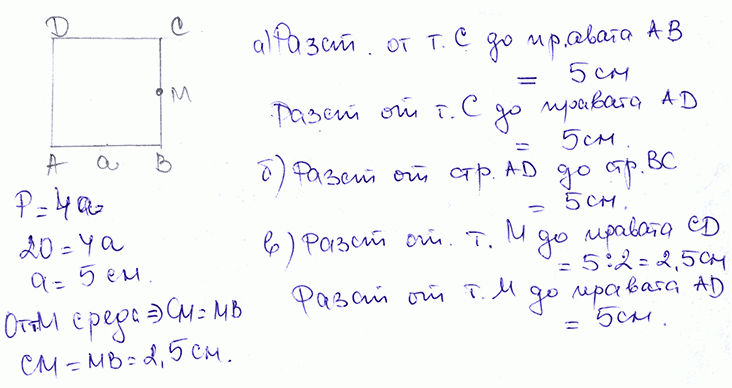 D C
M
A a B
P = 4a
20 = 4a
a = 5 см.
От т.М среда ⇒ CM = MB
CM = MB = 2,5 см.
а) Разст. от т. C до правата AB
= 5 см
Разст от т. C до правата AD
= 5 см.
б) Разст от стр. AD до стр. BC
= 5 см.
в) Разст от. т. M до правата CD
= 5:2 = 2,5 см
Разст от т. M до правата AD
= 5 см.